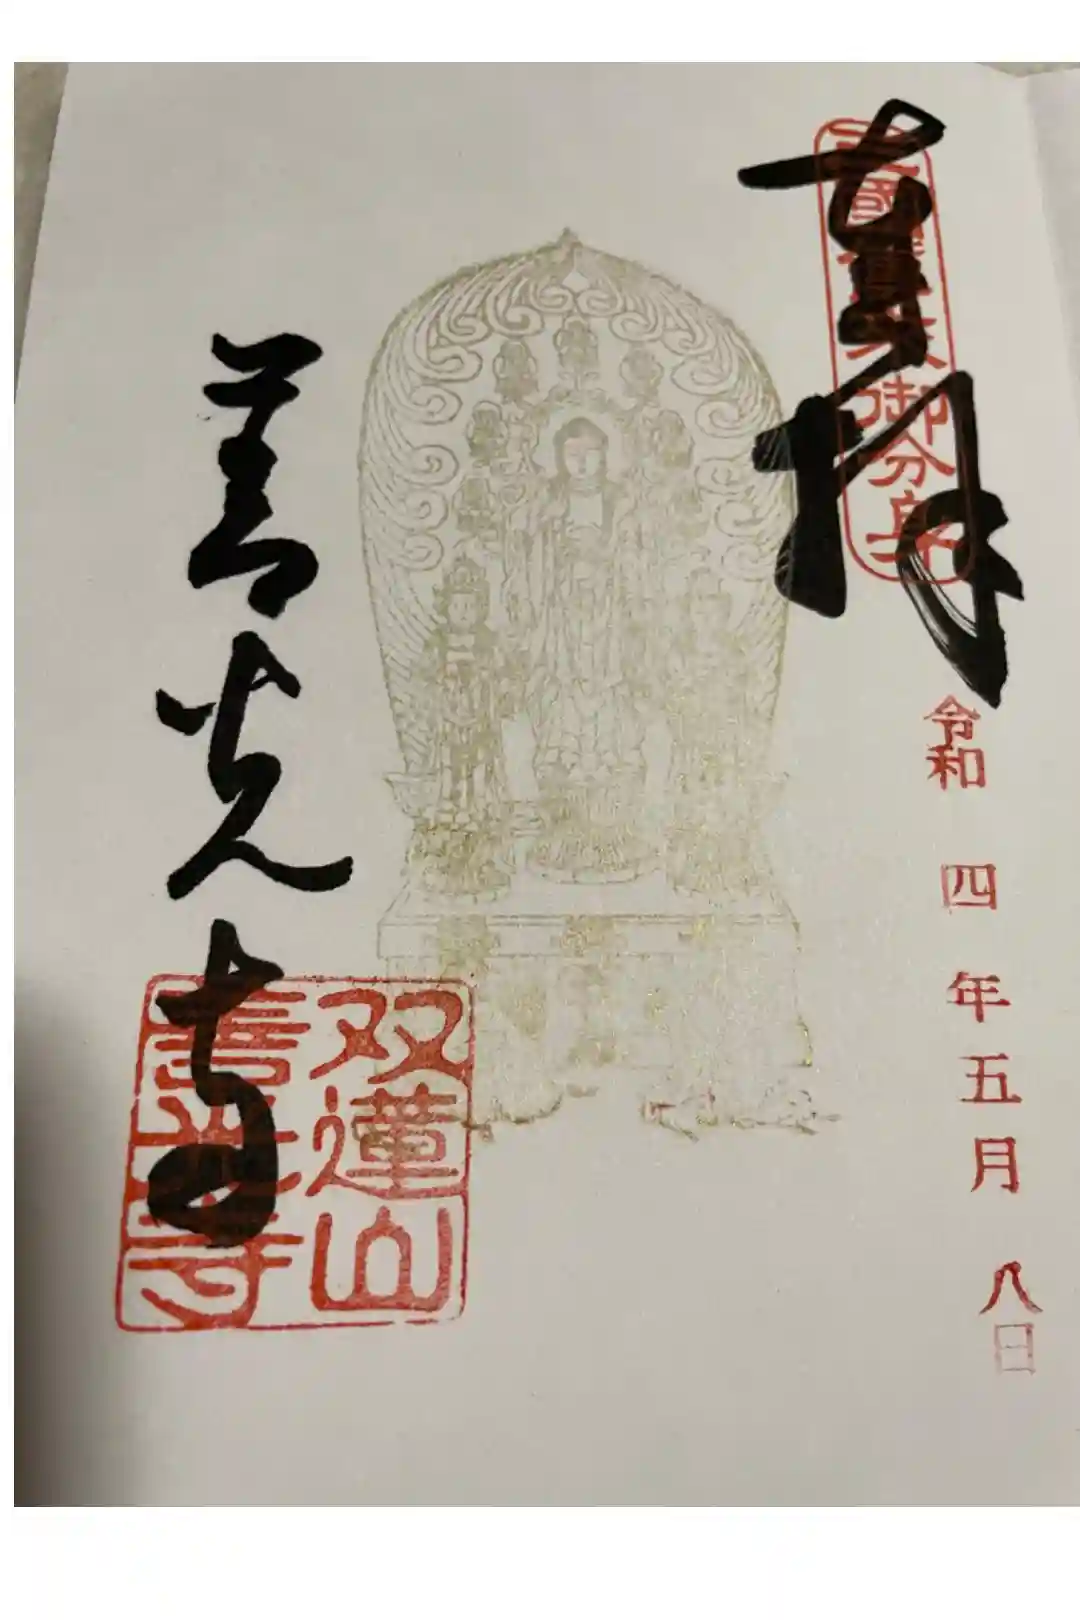 奉拝
三國傳来御分身
令和四年五月八日
善光寺
双蓮山
善光寺